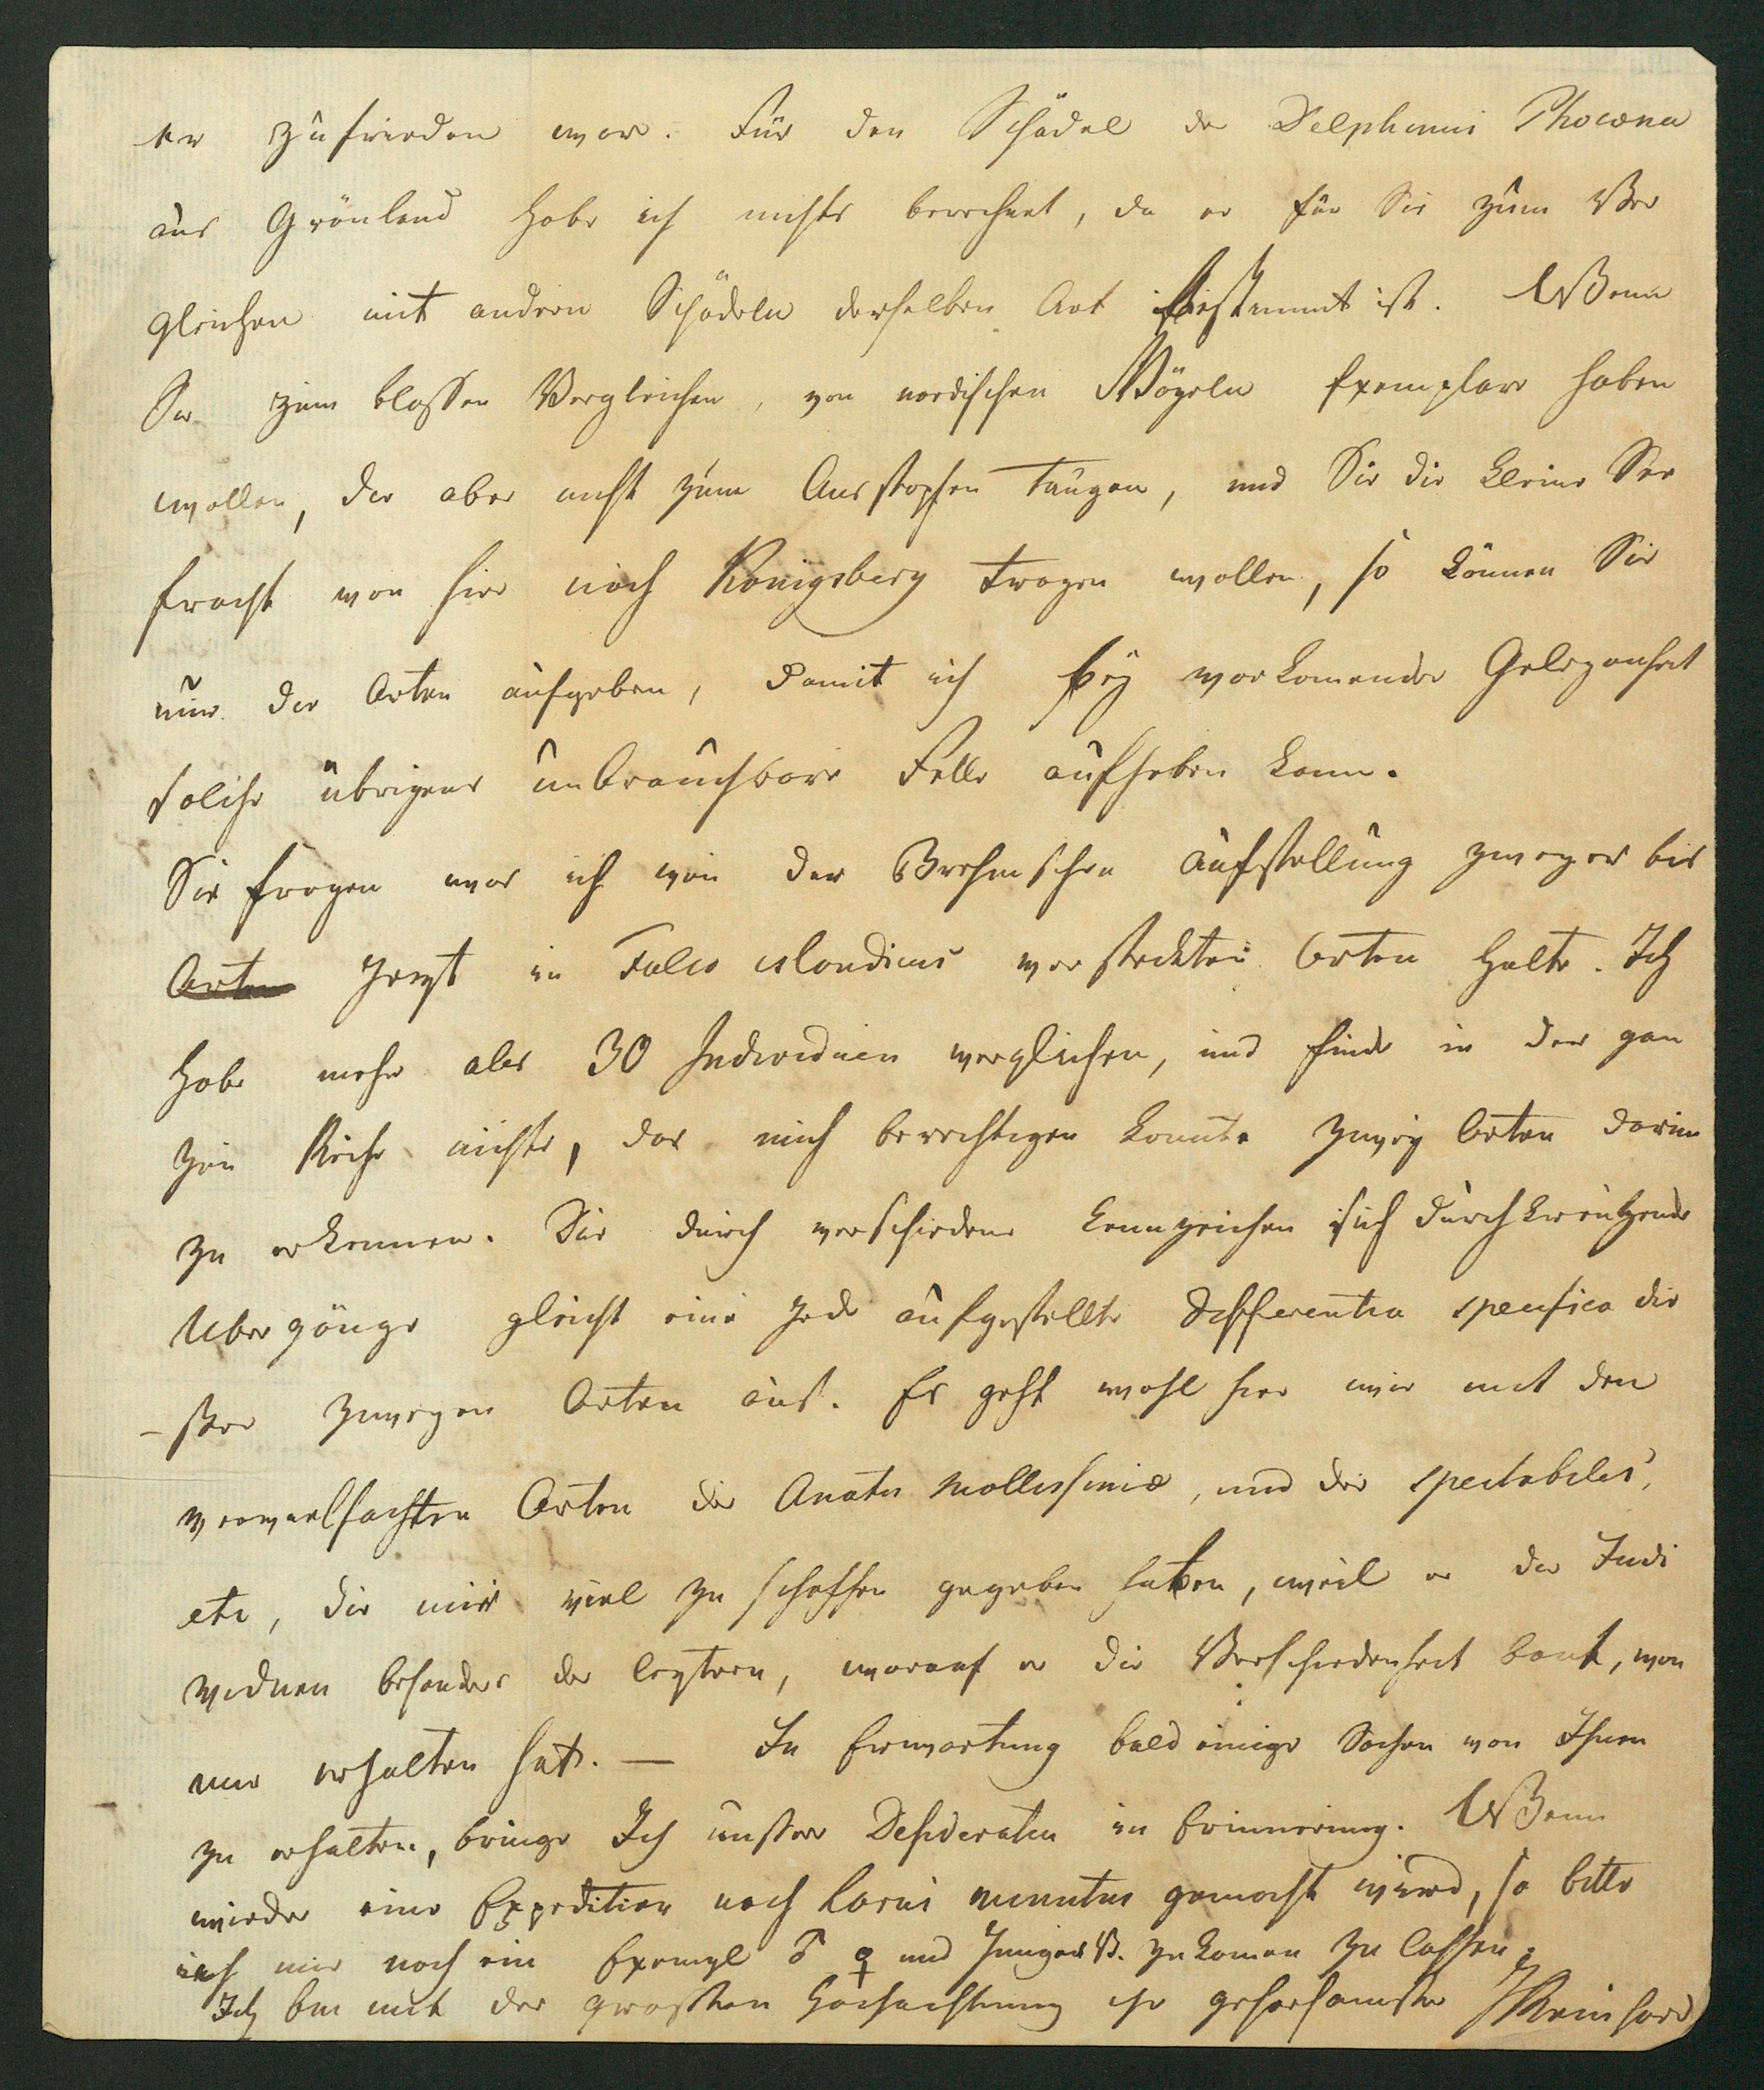 er zufrieden war. Für den Schädel der Delphinus Phocæna
aus Grönland habe ich nichts berechnet, da er für Sie zum Ver
gleichen mit andern Schädeln derselben Art bestimmt ist. Wenn
Sie zum blossen Vergleichen, von nordischen Vögeln Exemplare haben
wollen, die aber nicht zum Ausstopfen taugen, und Sie die kleine See
fracht von hier nach Königsberg tragen wollen, so können Sie
nur die Arten aufgeben, damit ich bey vorkomender Gelegenheit
solche übrigens unbrauchbare Felle aufheben kann.
Sie fragen was ich von der Brehmschen Aufstellung zweyer bis
Arten jezt in Falco islandicus versteckten Arten halte. Ich
habe mehr als 30 Individuen verglichen, und finde in der gan
zen Reihe nichts, das mich berechtigen konnte zwey Arten darin
zu erkennen. Die durch verschiedene Kennzeichen sich durchkreutzende
Ubergänge gleicht eine jede aufgestellte Differentia specifica die
-ser zweyen Arten aus. Es geht wohl hier wie mit den
vervielfachten Arten der Anatis mollissimæ, und der spectabilis,
etc, die mir viel zu schaffen gegeben haben, weil er die Indi
viduen besonders der leztern, worauf er die Verschiedenheit baut, von
mir erhalten hat. — In Erwartung bald einige Sachen von Ihnen
zu erhalten, bringe Ich unsere Desiderata in Erinnerung. Wenn
wieder eine Expedition nach Larus minutus gemacht wird, so bitte
ich mir noch ein Exempl ♂ ♀ und Junges V. zukomen zu lassen.
Ich bin mit der grossten Hochachtung ihr gehorsamster JReinhard